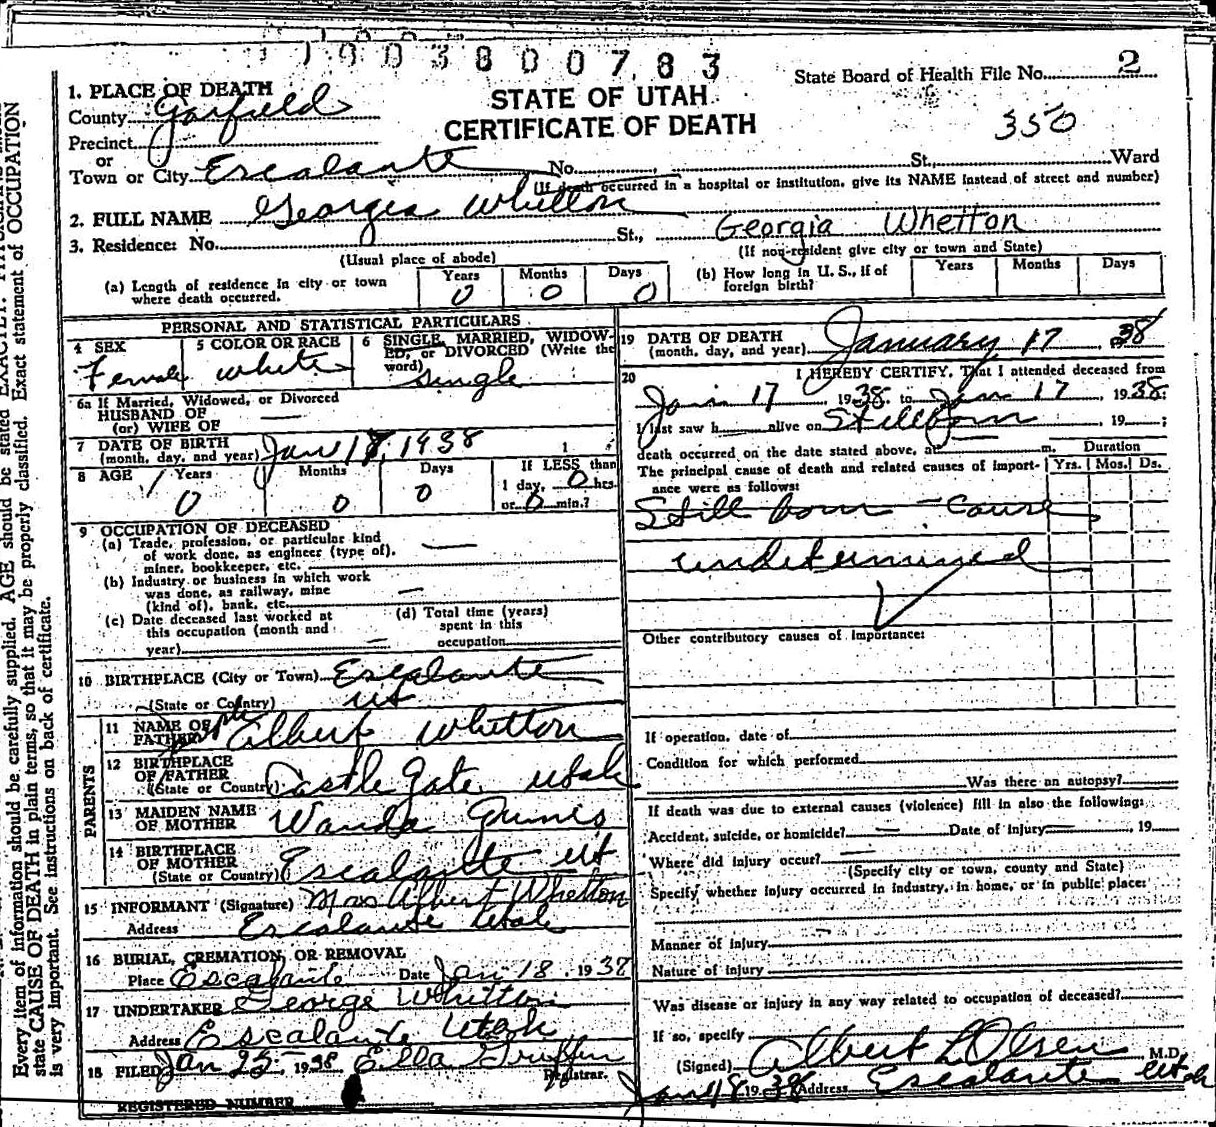 1003800783
State Board of Health File No. 2
STATE OF UTAH
CERTIFICATE OF DEATH
350
1. PLACE OF DEATH
County Garfield
Precinct
or
Town or City Escalante No. St., Ward
(If death occurred in a hospital or institution, give its NAME instead of street and number)
2. FULL NAME Georgia Whetton
3. Residence: No. St., Georgia Whetton
(Usual place of abode) (If non-resident give city or town and State)
(a) Length of residence in city or town where death occurred. Years 0 Months 0 Days 0
(b) How long in U. S., if of foreign birth? Years Months Days
PERSONAL AND STATISTICAL PARTICULARS
4 SEX Female
5 COLOR OR RACE white
6 SINGLE, MARRIED, WIDOWED, or DIVORCED (Write the word) single
6a If Married, Widowed, or Divorced
HUSBAND OF
(or) WIFE OF
7 DATE OF BIRTH
(month, day, and year) Jan 17, 1938
8 AGE Years 0 Months 0 Days 0
If LESS than
1 day, 0 hrs.
or 0 min.?
9 OCCUPATION OF DECEASED
(a) Trade, profession, or particular kind
of work done, as engineer (type of),
miner, bookkeeper, etc.
(b) Industry or business in which work
was done, as railway, mine
(kind of), bank, etc.
(c) Date deceased last worked at
this occupation (month and
year)
(d) Total time (years)
spent in this
occupation
10 BIRTHPLACE (City or Town) Escalante
(State or Country) Ut
PARENTS
11 NAME OF
FATHER Albert Whetton
12 BIRTHPLACE
OF FATHER
(State or Country) Castle Gate Utah
13 MAIDEN NAME
OF MOTHER Wanda
14 BIRTHPLACE
OF MOTHER
(State or Country) Escalante Ut
15 INFORMANT (Signature) Mrs Albert Whetton
Address Escalante Utah
16 BURIAL, CREMATION, OR REMOVAL
Place Escalante Date Jan 18, 1938
17 UNDERTAKER George Whetton
Address Escalante Utah
18 FILED Jan 25 1938 Ella Griffin
Registrar.
REGISTERED NUMBER
19 DATE OF DEATH
(month, day, and year) January 17 38
20 I HEREBY CERTIFY, That I attended deceased from
Jan 17, 1938, to Jan 17, 1938;
I last saw h alive on Stillborn, 19 ;
death occurred on the date stated above, at m.
The principal cause of death and related causes of importance were as follows:
Duration
Yrs. Mos. Ds.
Still born - Cause
undetermined
Other contributory causes of importance:
If operation, date of
Condition for which performed
Was there an autopsy?
If death was due to external causes (violence) fill in also the following:
Accident, suicide, or homicide? Date of injury , 19
Where did injury occur?
(Specify city or town, county and State)
Specify whether injury occurred in industry, in home, or in public place:
Manner of injury
Nature of injury
Was disease or injury in any way related to occupation of deceased?
If so, specify
(Signed) Albert L Olsen M.D.
Jan 18 1938 Address Escalante Utah
Every item of information should be carefully supplied. AGE should be stated EXACTLY.
state CAUSE OF DEATH in plain terms, so that it may be properly classified. Exact statement of OCCUPATION
is very important. See instructions on back of certificate.